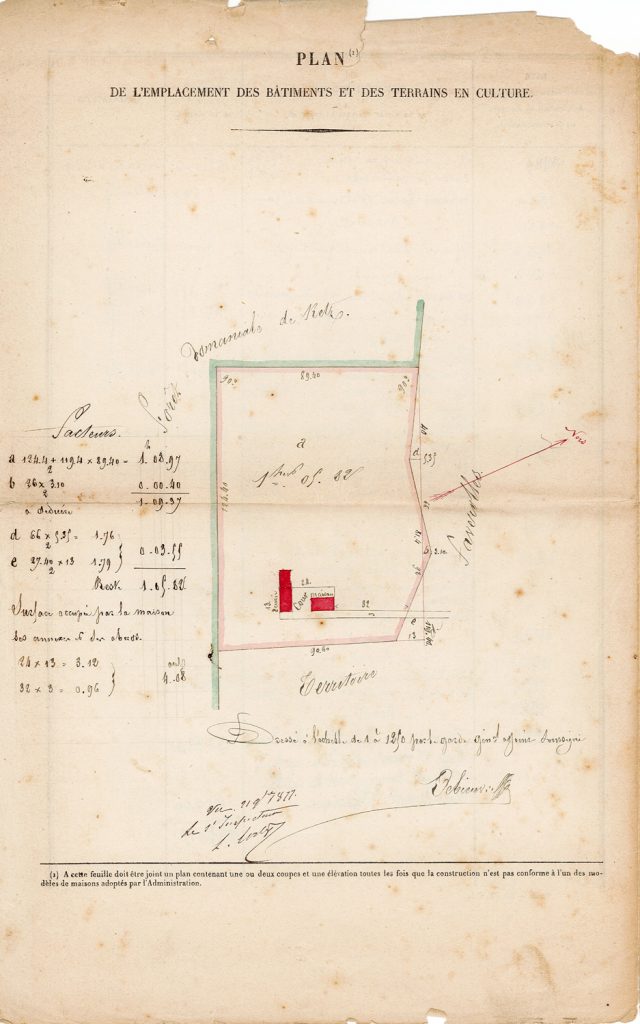 PLAN (1)
DE L'EMPLACEMENT DES BÂTIMENTS ET DES TERRAINS EN CULTURE.
Forêt Domaniale de Retz.
90°
89.40
90°
40
a
d
5.35
1 hect 05. 82
124.40
Nord
Faverolles
b
3.10
24
Cour
maison
13
32
e
13
90.60
Territoire
Facteurs.
a 124.4 + 119.4 x 89.40 = 1. 08. 97
2
b 26 x 3.10 0. 00. 40
2
1. 09. 37
à déduire
d 66 x 5.35 = 1.76
2
e 27.40 x 13 1.79 } 0. 03. 55
2
Reste 1. 05. 82
Surface occupée par la maison
ses annexes & des abords.
24 x 13 = 3.12
32 x 3 = 0.96 } 4.08
Dressé à l'échelle de 1 à 1250 par le garde soussigné
Vu. 21 9bre 1877.
Le Inspecteur
(1) A cette feuille doit être joint un plan contenant une ou deux coupes et une élévation toutes les fois que la construction n'est pas conforme à l'un des mo-
dèles de maisons adoptés par l'Administration.